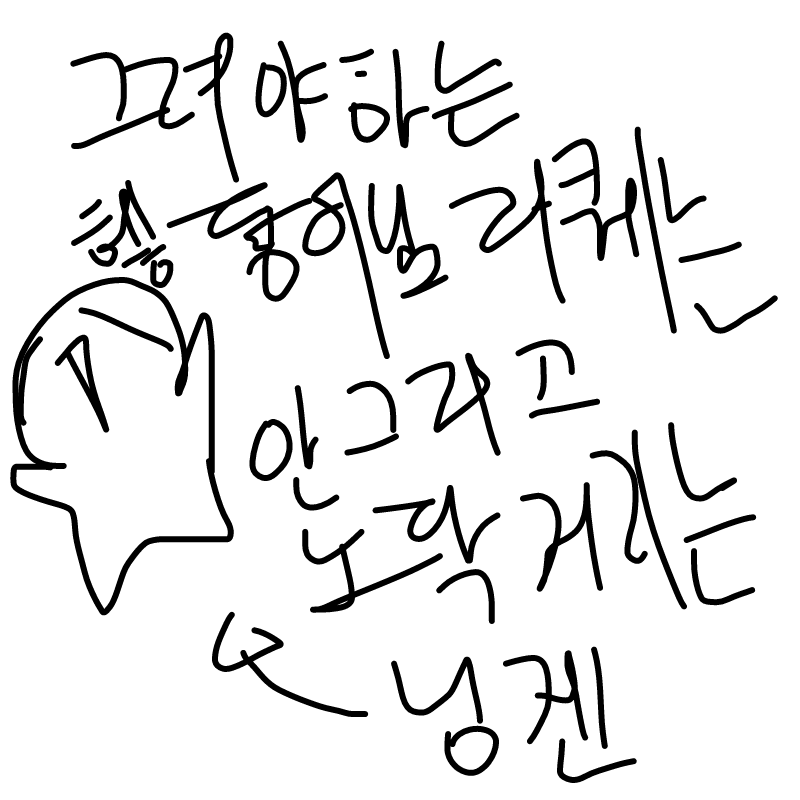 그려야하는
동이님 리퀘는
안그리고
노닥거리는
닝겐